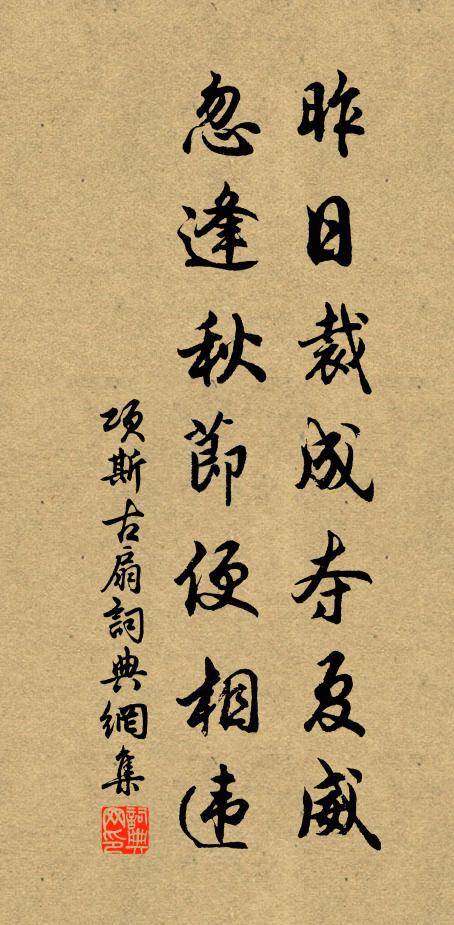 昨日裁成夺夏威
忽逢秋節便相违
项斯古扇詞典網集
詞典网印